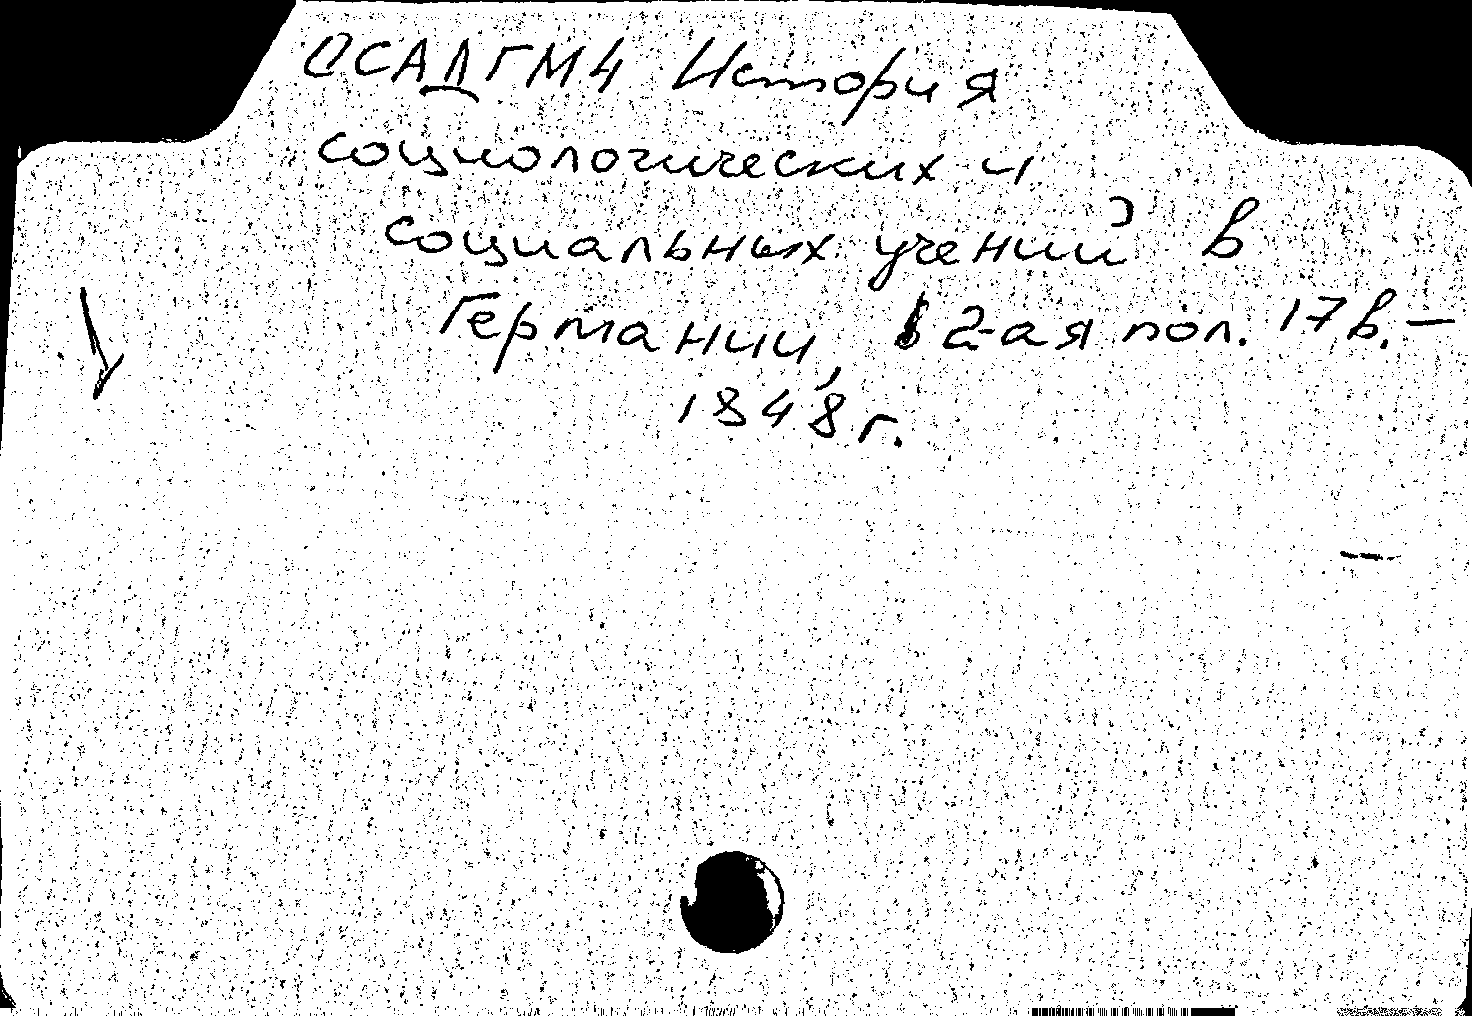 ССАДГМ4 История
социологических и
социальных учений в
Германии, 2-ая пол. 17 в. –
1848 г.